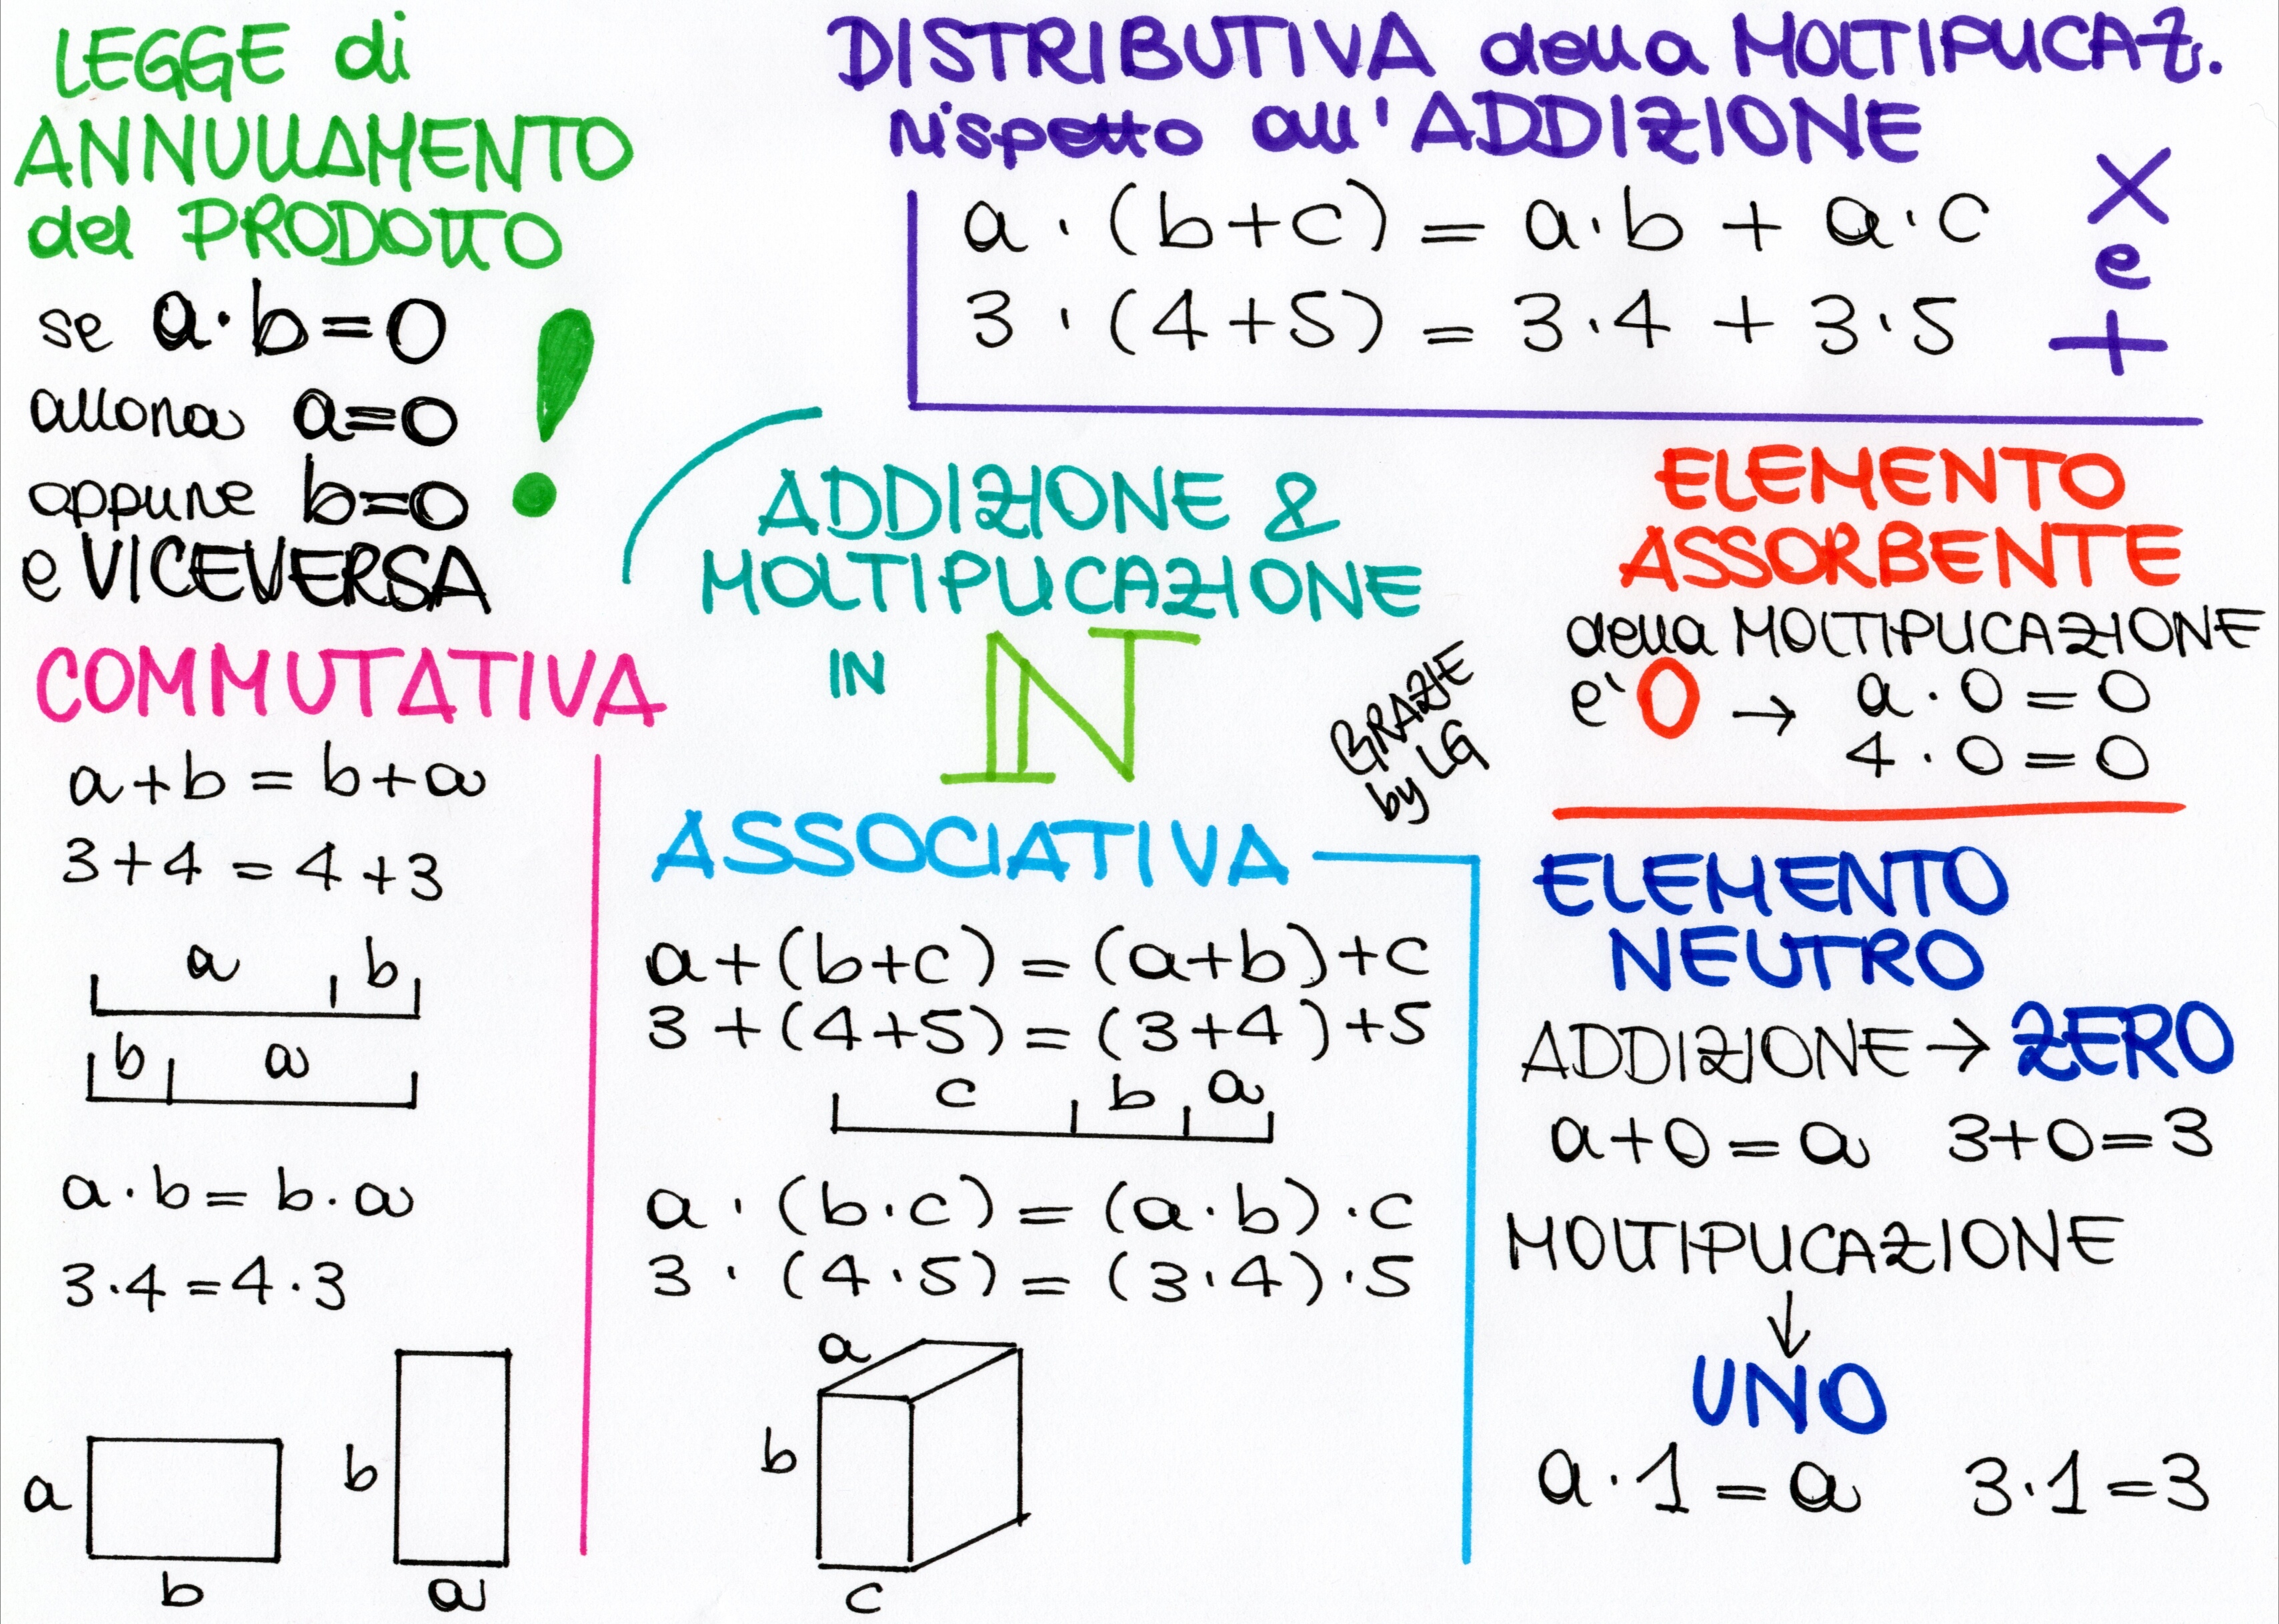 LEGGE di
ANNULLAMENTO
del PRODOTTO
se a·b=0
allora a=0
oppure b=0
e VICEVERSA
!
DISTRIBUTIVA della MOLTIPLICAZ.
rispetto all'ADDIZIONE
a·(b+c) = a·b + a·c
3·(4+5) = 3·4 + 3·5
X
e
+
ADDIZIONE &
MOLTIPLICAZIONE
IN ℕ
GRAZIE
by LG
ELEMENTO
ASSORBENTE
della MOLTIPLICAZIONE
e' 0 → a·0=0
4·0=0
COMMUTATIVA
a+b = b+a
3+4 = 4+3
a b
b a
a·b = b·a
3·4=4·3
a
b
b
a
ASSOCIATIVA
a+(b+c) = (a+b)+c
3+(4+5) = (3+4)+5
c b a
a·(b·c) = (a·b)·c
3·(4·5) = (3·4)·5
a
b
c
ELEMENTO
NEUTRO
ADDIZIONE → ZERO
a+0=a 3+0=3
MOLTIPLICAZIONE
↓
UNO
a·1=a 3·1=3